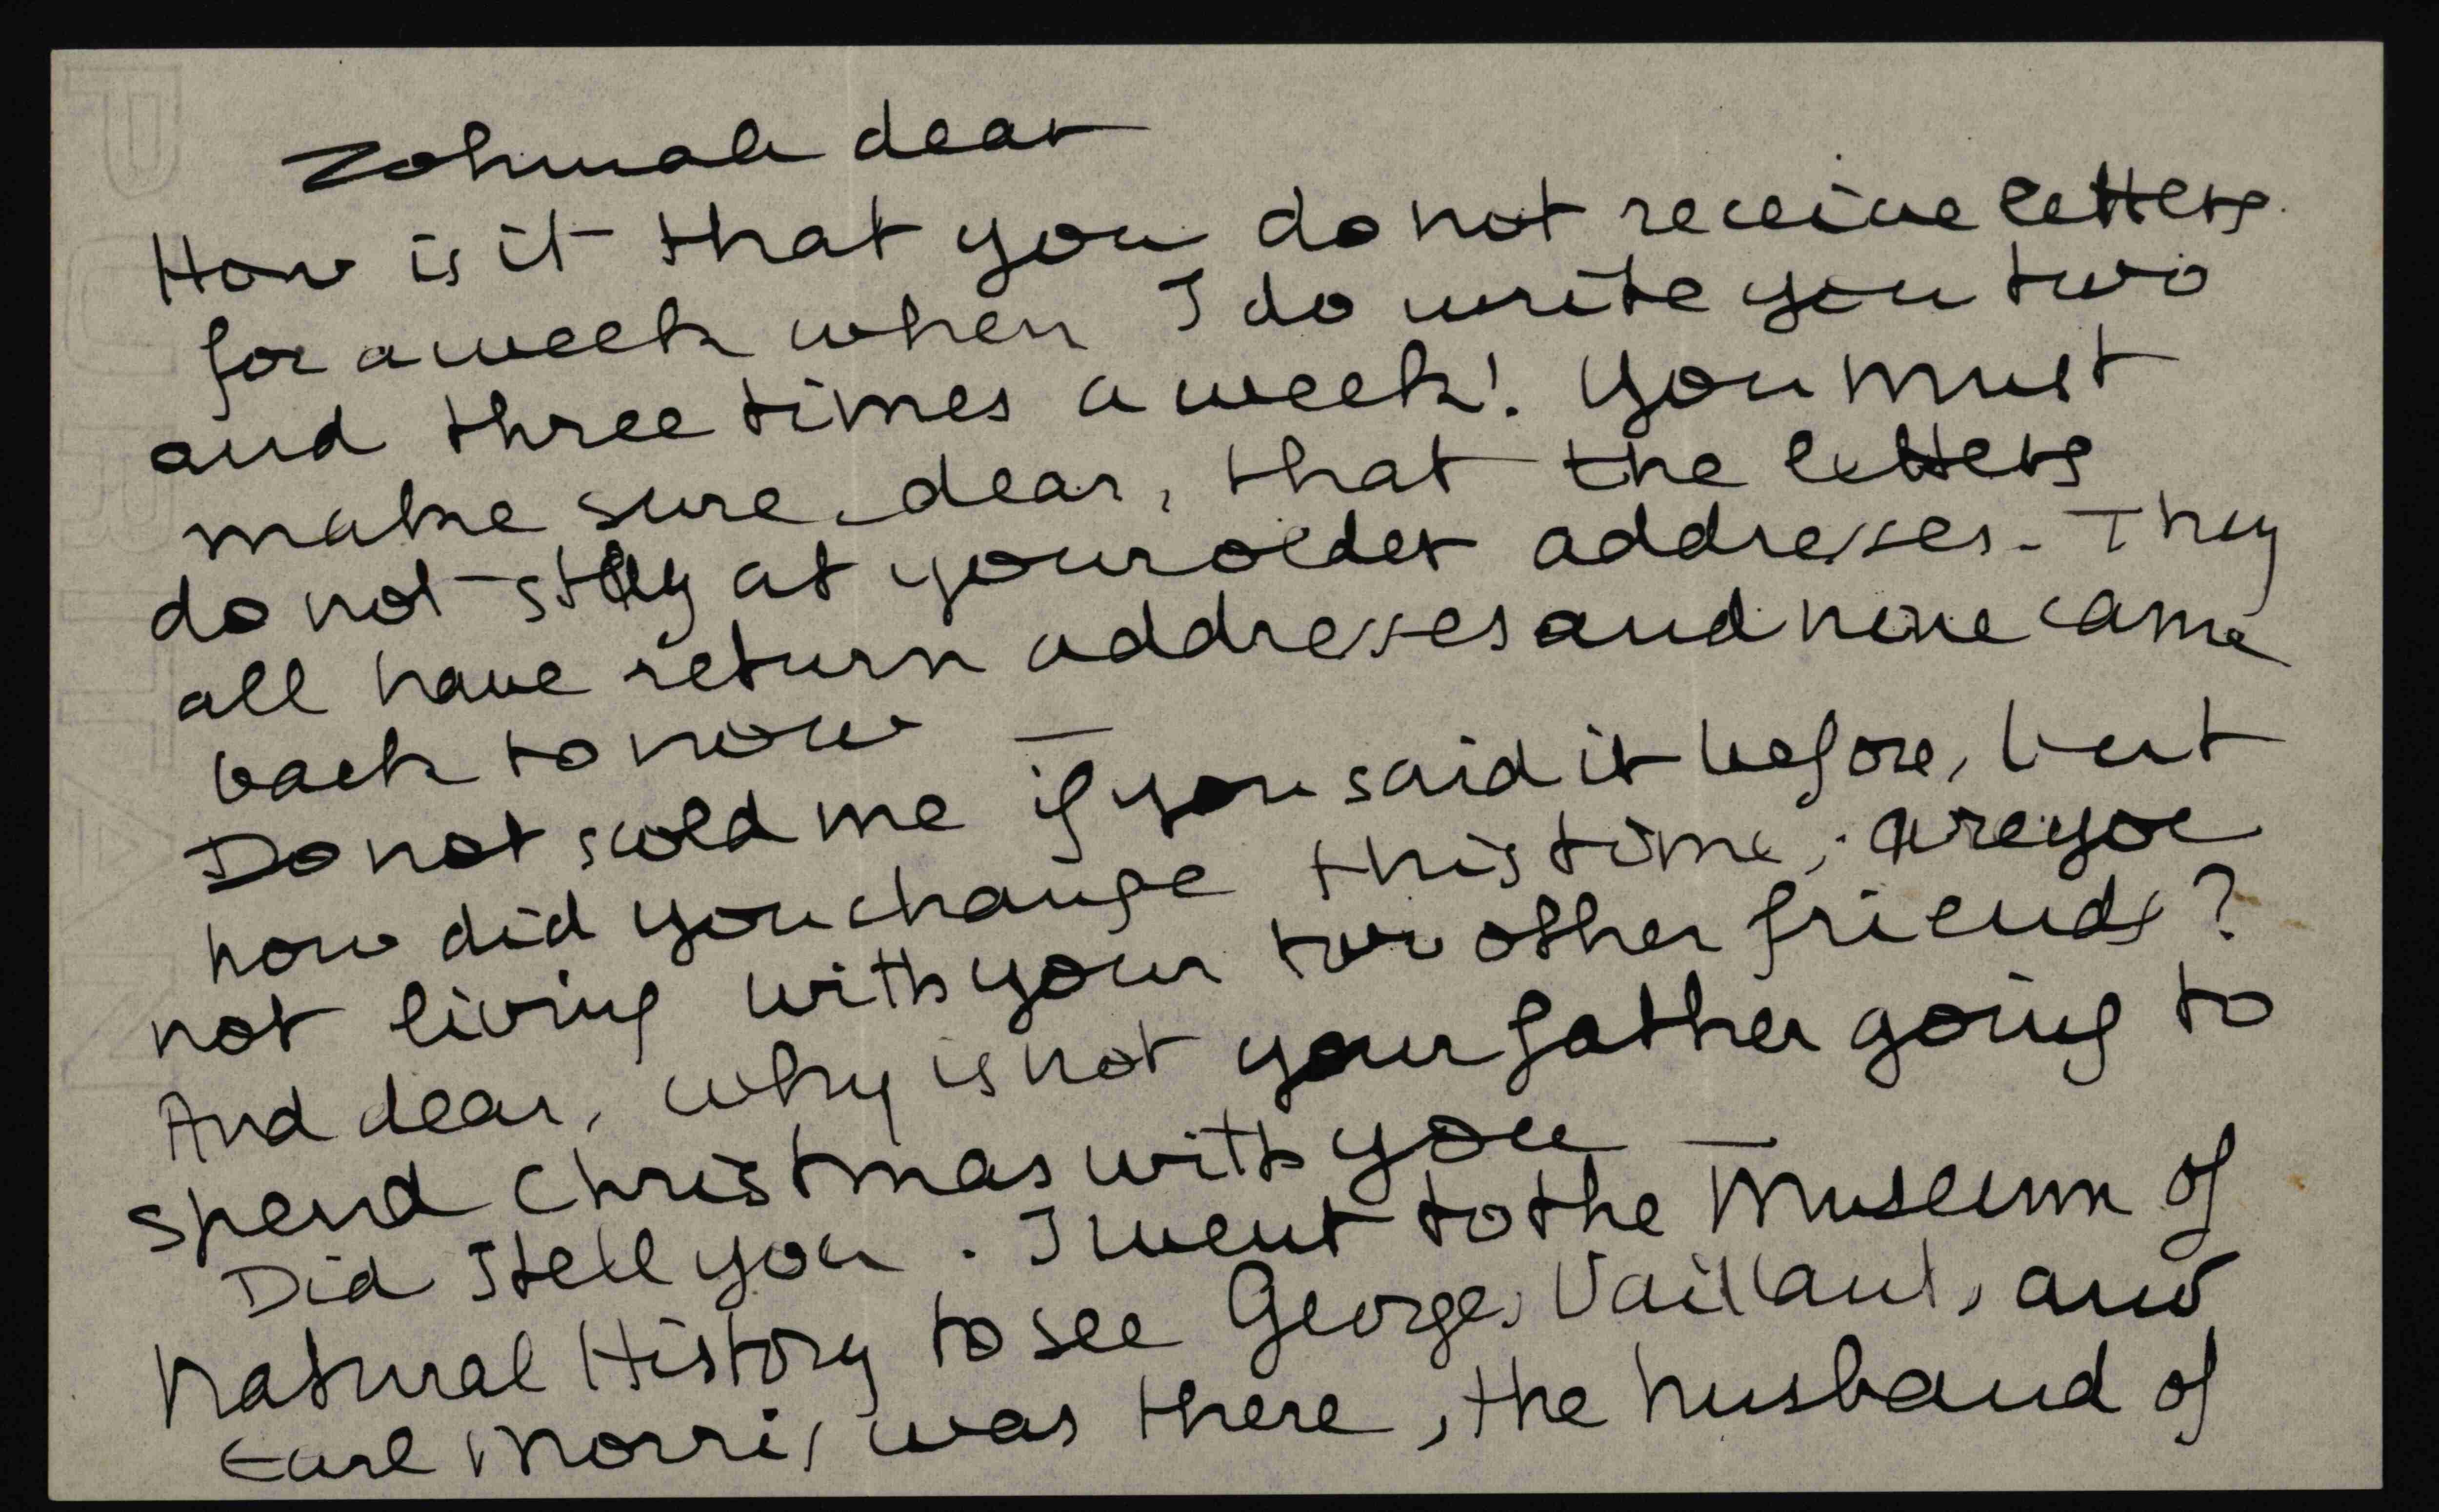 Zohmah dear
How is it that you do not receive letters
for a week when I do write you two
and three times a week! You must
make sure, dear, that the letters
do not stay at your older addresses. They
all have return addresses and none came
back to now —
Do not scold me if you said it before, but
how did you change this time, are you
not living with your two other friends?
And dear, why is not your father going to
spend Christmas with you —
Did I tell you. I went to the Museum of
Natural History to see George, Vaillant, and
Earl Morris was there, the husband of